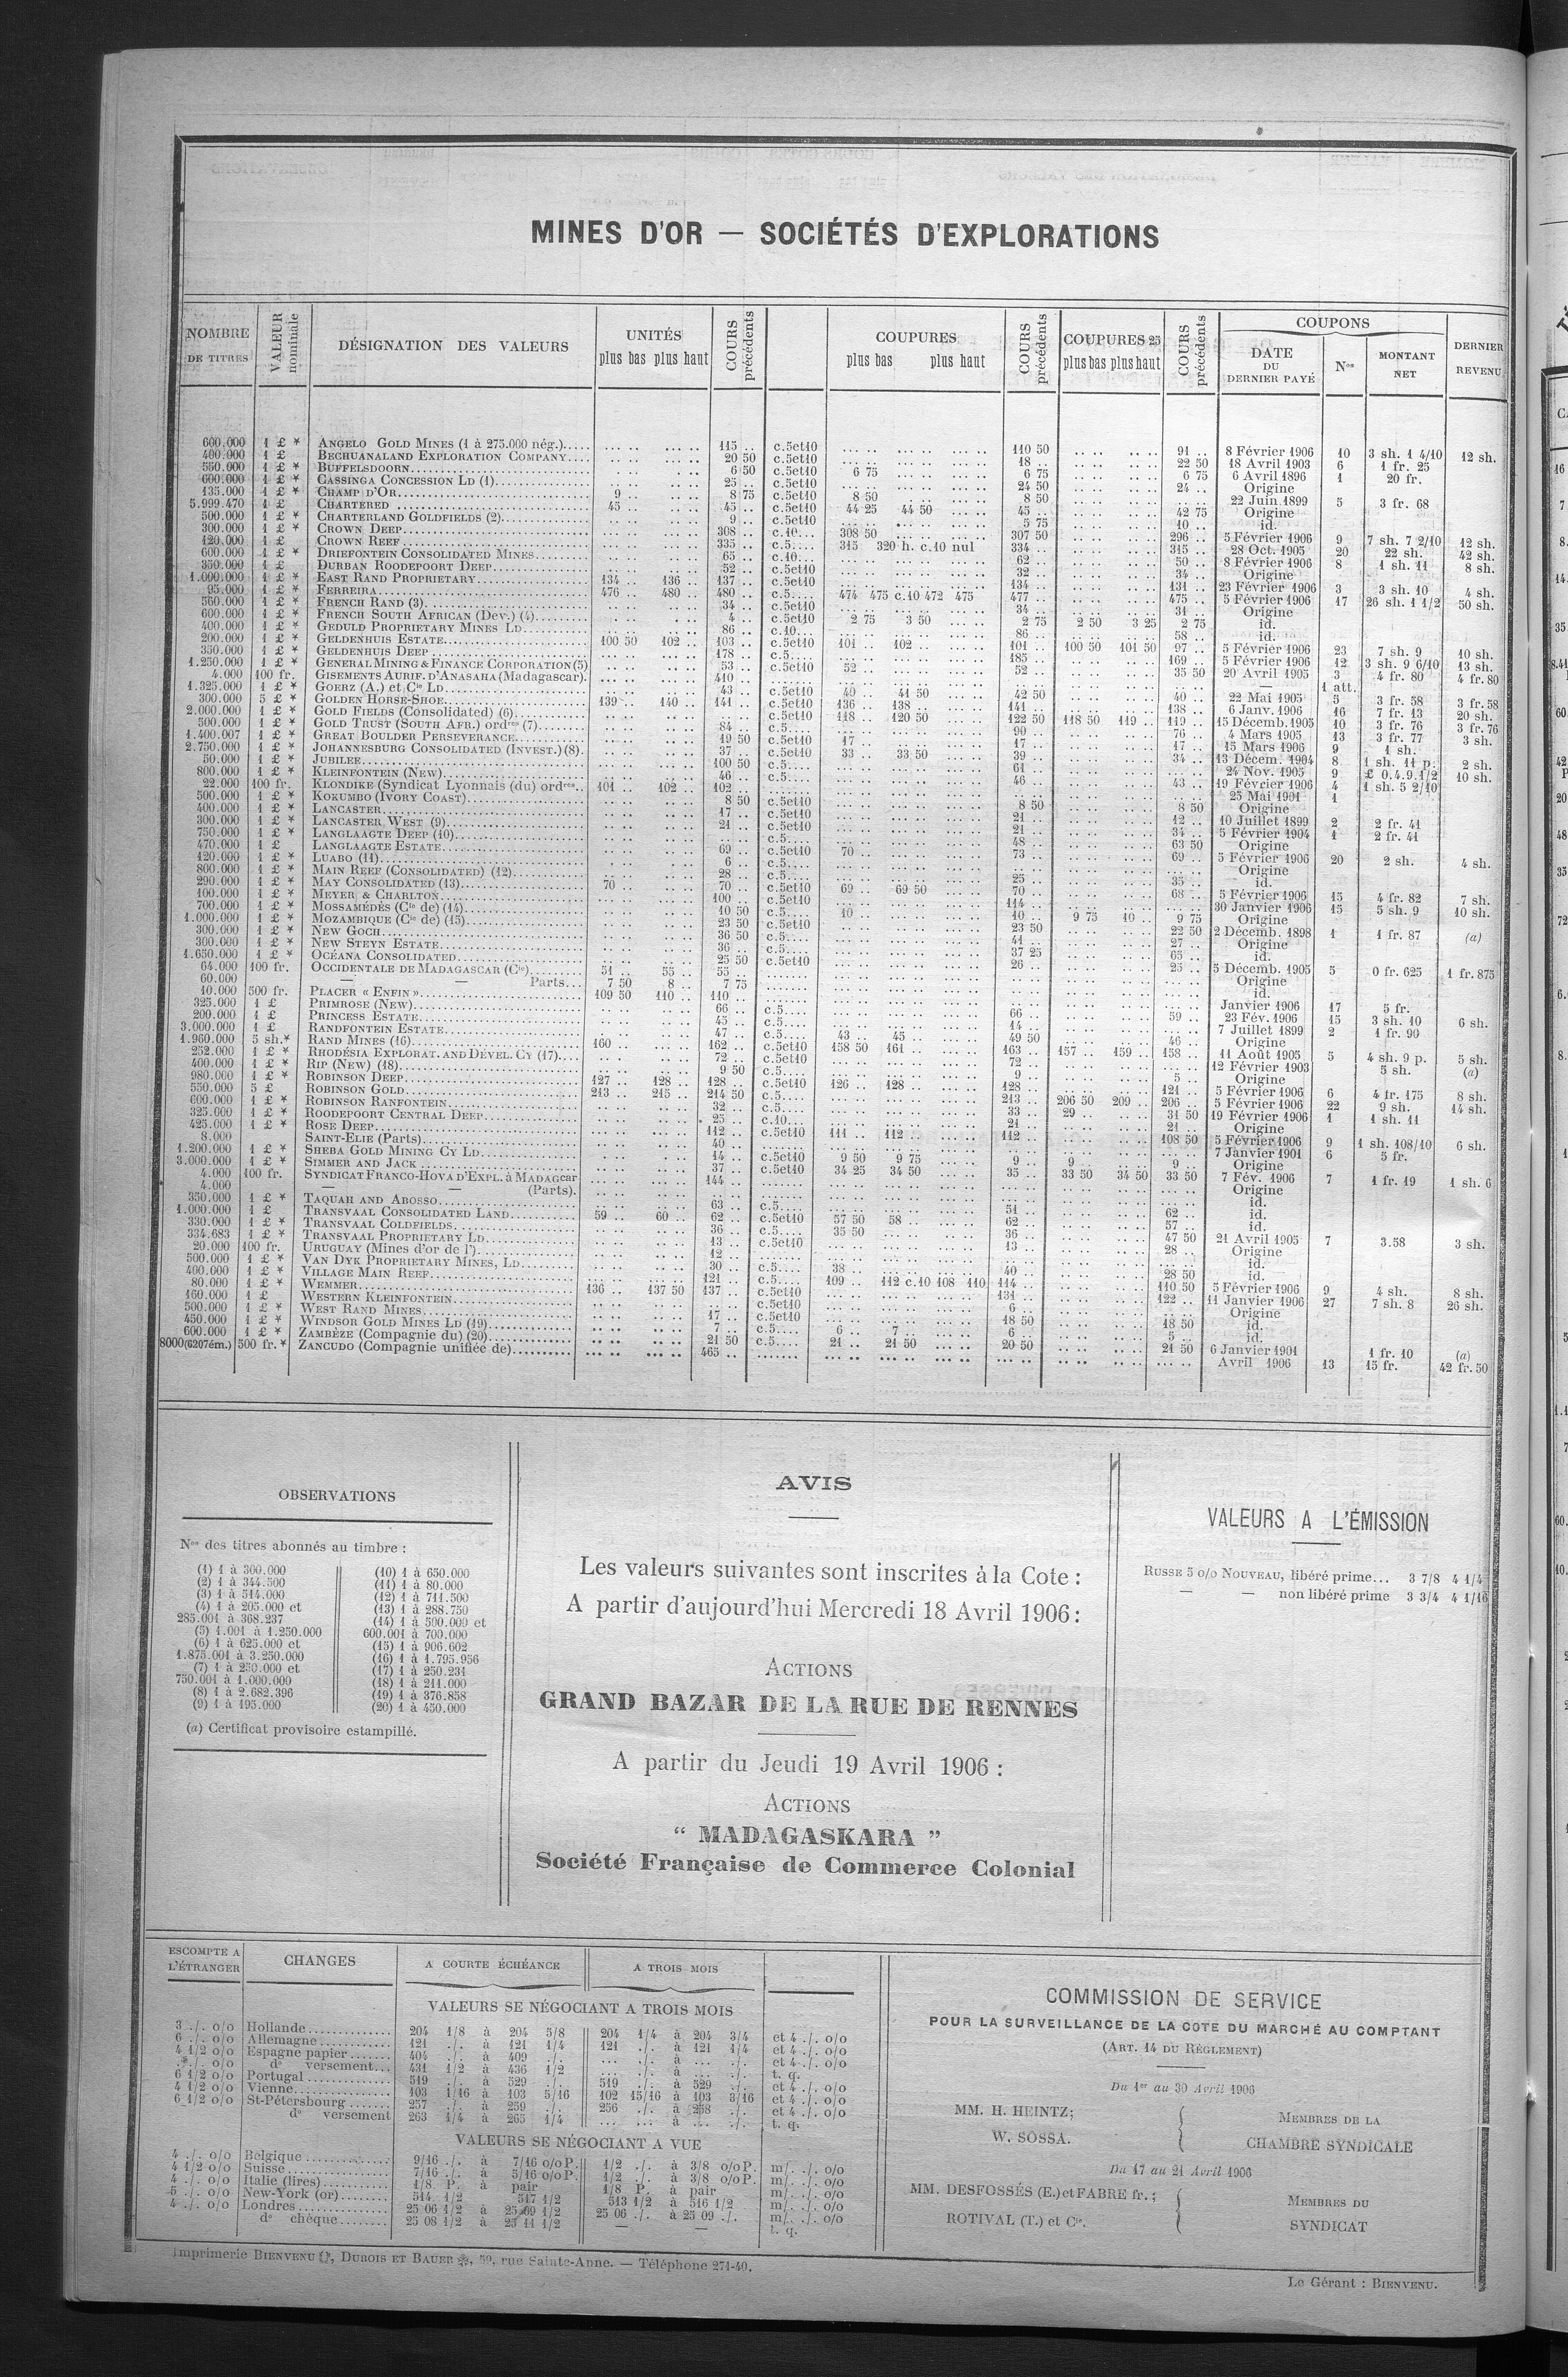 MINES D'OR — SOCIÉTÉS D'EXPLORATIONS
NOMBRE DE TITRES
VALEUR nominale
DÉSIGNATION DES VALEURS
UNITÉS
plus bas plus haut
COURS précédents
COUPURES
plus bas plus haut
COURS précédents
COUPURES 25
plus bas plus haut
COURS précédents
COUPONS
DATE DU DERNIER PAYÉ
Nos
MONTANT NET
DERNIER REVENU
600.000 1 £ * ANGELO GOLD MINES (1 à 275.000 nég.)..... 115 .. c.5et10 110 50 91 .. 8 Février 1906 10 3 sh. 1 4/10 12 sh.
400.000 1 £ BECHUANALAND EXPLORATION COMPANY.... 20 50 c.5et10 18 .. 22 50 18 Avril 1903 6 1 fr. 25
550.000 1 £ * BUFFELSDOORN 6 50 c.5et10 6 75 6 75 6 75 6 Avril 1896 1 20 fr.
600.000 1 £ * CASSINGA CONCESSION LD (1) 25 .. c.5et10 24 50 24 .. Origine
135.000 1 £ * CHAMP D'OR 9 .. 8 75 c.5et10 8 50 8 50 22 Juin 1899 5 3 fr. 68
5.999.470 1 £ CHARTERED 45 .. 45 .. c.5et10 44 25 44 50 45 .. 42 75 Origine
500.000 1 £ * CHARTERLAND GOLDFIELDS (2) 9 .. c.5et10 5 75 10 .. id.
300.000 1 £ * CROWN DEEP 308 .. c.10... 308 50 307 50 296 .. 5 Février 1906 9 7 sh. 7 2/10 12 sh.
120.000 1 £ CROWN REEF 335 .. c.5.... 315 320 h. c.10 nul 334 .. 315 .. 28 Oct. 1905 20 22 sh. 42 sh.
600.000 1 £ * DRIEFONTEIN CONSOLIDATED MINES 65 .. c.10... 62 .. 50 .. 8 Février 1906 8 1 sh. 11 8 sh.
350.000 1 £ DURBAN ROODEPOORT DEEP 52 .. c.5et10 32 .. 34 .. Origine
1.000.000 1 £ * EAST RAND PROPRIETARY 134 .. 136 .. 137 .. c.5et10 134 .. 131 .. 23 Février 1906 3 3 sh. 10 4 sh.
95.000 1 £ * FERREIRA 476 .. 480 .. 480 .. c.5.... 474 475 c.10 472 475 477 .. 475 .. 5 Février 1906 17 26 sh. 1 1/2 50 sh.
560.000 1 £ * FRENCH RAND (3) 34 .. c.5et10 34 .. 31 .. Origine
600.000 1 £ * FRENCH SOUTH AFRICAN (Dev.) (4) 4 .. c.5et10 2 75 3 50 2 75 2 50 3 25 2 75 id.
400.000 1 £ * GEDULD PROPRIETARY MINES LD 86 .. c.10... 86 .. 58 .. id.
200.000 1 £ * GELDENHUIS ESTATE 100 50 102 .. 103 .. c.5et10 101 .. 102 .. 101 .. 100 50 101 50 97 .. 5 Février 1906 23 7 sh. 9 10 sh.
350.000 1 £ * GELDENHUIS DEEP 178 .. c.5.... 185 .. 169 .. 5 Février 1906 12 3 sh. 9 6/10 13 sh.
1.250.000 1 £ * GENERAL MINING & FINANCE CORPORATION (5) 53 .. c.5et10 52 .. 52 .. 35 50 20 Avril 1905 3 4 fr. 80 4 fr. 80
4.000 100 fr. GISEMENTS AURIF. D'ANASAHA (Madagascar). 410 .. — 1 att.
1.325.000 1 £ * GOERZ (A.) et Cie LD 43 .. c.5et10 40 41 50 42 50 40 .. 22 Mai 1905 5 3 fr. 58 3 fr. 58
300.000 5 £ * GOLDEN HORSE-SHOE 139 .. 140 .. 141 .. c.5et10 136 .. 138 .. 141 .. 138 .. 6 Janv. 1906 16 7 fr. 13 20 sh.
2.000.000 1 £ * GOLD FIELDS (Consolidated) (6) c.5et10 118 .. 120 50 122 50 118 50 119 .. 119 .. 15 Décemb. 1905 10 3 fr. 76 3 fr. 76
500.000 1 £ * GOLD TRUST (SOUTH AFR.) ordres (7) 84 .. c.5.... 90 .. 76 .. 4 Mars 1905 13 3 fr. 77 3 sh.
1.400.007 1 £ * GREAT BOULDER PERSEVERANCE 19 50 c.5et10 17 .. 17 .. 17 .. 15 Mars 1906 9 1 sh.
2.750.000 1 £ * JOHANNESBURG CONSOLIDATED (INVEST.) (8). 37 .. c.5et10 33 .. 33 50 39 .. 34 .. 13 Décem. 1904 8 1 sh. 11 p. 2 sh.
50.000 1 £ * JUBILEE 100 50 c.5.... 61 .. 24 Nov. 1905 9 £ 0.4.9.1/2 10 sh.
800.000 1 £ * KLEINFONTEIN (NEW) 46 .. c.5.... 46 .. 43 .. 19 Février 1906 4 1 sh. 5 2/10
22.000 100 fr. KLONDIKE (Syndicat Lyonnais (du) ordres.. 101 .. 102 .. 102 .. 25 Mai 1901 1
500.000 1 £ * KOKUMBO (IVORY COAST) 8 50 c.5et10 8 50 8 50 Origine
400.000 1 £ * LANCASTER 17 .. c.5et10 21 .. 12 .. 10 Juillet 1899 2 2 fr. 41
300.000 1 £ * LANCASTER WEST (9) 21 .. c.5et10 21 .. 34 .. 5 Février 1904 1 2 fr. 41
750.000 1 £ * LANGLAAGTE DEEP (10) c.5.... 48 .. 63 50 Origine
470.000 1 £ LANGLAAGTE ESTATE 69 .. c.5et10 70 .. 73 .. 69 .. 5 Février 1906 20 2 sh. 4 sh.
120.000 1 £ * LUABO (11) 6 .. c.5.... Origine
800.000 1 £ * MAIN REEF (CONSOLIDATED) (12) 28 .. c.5.... 25 .. 35 .. id.
290.000 1 £ * MAY CONSOLIDATED (13) 70 .. 70 .. c.5et10 69 .. 69 50 70 .. 68 .. 5 Février 1906 15 4 fr. 82 7 sh.
100.000 1 £ * MEYER & CHARLTON 100 .. c.5et10 114 .. 30 Janvier 1906 15 5 sh. 9 10 sh.
700.000 1 £ * MOSSAMÉDÈS (Cie de) (14) 10 50 c.5.... 10 .. 10 .. 9 75 10 .. 9 75 Origine
1.000.000 1 £ * MOZAMBIQUE (Cie de) (15) 23 50 c.5et10 23 50 22 50 2 Décemb. 1898 1 1 fr. 87 (a)
300.000 1 £ * NEW GOCH 36 50 c.5.... 41 .. 27 .. Origine
300.000 1 £ * NEW STEYN ESTATE 36 .. c.5.... 37 25 65 .. id.
1.650.000 1 £ * OCÉANA CONSOLIDATED 25 50 c.5et10 26 .. 25 .. 5 Décemb. 1905 5 0 fr. 625 1 fr. 875
64.000 100 fr. OCCIDENTALE DE MADAGASCAR (Cie) 51 .. 55 .. 55 .. Origine
60.000 — Parts... 7 50 8 .. 7 75 id.
10.000 500 fr. PLACER « ENFIN » 109 50 110 .. 110 .. Janvier 1906 17 5 fr.
325.000 1 £ PRIMROSE (NEW) 66 .. c.5.... 66 .. 59 .. 23 Fév. 1906 15 3 sh. 10 6 sh.
200.000 1 £ PRINCESS ESTATE 45 .. c.5.... 14 .. 7 Juillet 1899 2 1 fr. 90
3.000.000 1 £ RANDFONTEIN ESTATE 47 .. c.5.... 43 .. 45 .. 49 50 46 .. Origine
1.960.000 5 sh.* RAND MINES (16) 160 .. 162 .. c.5et10 158 50 161 .. 163 .. 157 .. 159 .. 158 .. 11 Août 1905 5 4 sh. 9 p. 5 sh.
252.000 1 £ * RHODÉSIA EXPLORAT. AND DÉVEL. CY (17) 72 .. c.5et10 72 .. 12 Février 1903 5 sh. (a)
400.000 1 £ * RIP (NEW) (18) 9 50 c.5.... 9 .. 5 .. Origine
980.000 1 £ * ROBINSON DEEP 127 .. 128 .. 128 .. c.5et10 126 .. 128 .. 128 .. 121 .. 5 Février 1906 6 4 fr. 175 8 sh.
550.000 5 £ ROBINSON GOLD 213 .. 215 .. 214 50 c.5.... 213 .. 206 50 209 .. 206 .. 5 Février 1906 22 9 sh. 14 sh.
600.000 1 £ * ROBINSON RANFONTEIN 32 .. c.5.... 33 .. 29 .. 31 50 19 Février 1906 1 1 sh. 11
325.000 1 £ * ROODEPOORT CENTRAL DEEP 25 .. c.10... 21 .. 21 .. Origine
425.000 1 £ * ROSE DEEP 112 .. c.5et10 111 .. 112 .. 112 .. 108 50 5 Février 1906 9 1 sh. 108/10 6 sh.
8.000 SAINT-ELIE (Parts) 40 .. 7 Janvier 1901 6 5 fr.
1.200.000 1 £ * SHEBA GOLD MINING CY LD 14 .. c.5et10 9 50 9 75 9 .. 9 .. 9 .. Origine
3.000.000 1 £ * SIMMER AND JACK 37 .. c.5et10 34 25 34 50 35 .. 33 50 34 50 33 50 7 Fév. 1906 7 1 fr. 19 1 sh. 6
4.000 100 fr. SYNDICAT FRANCO-HOVA D'EXPL. à MADAGcar 144 .. Origine
4.000 — — (Parts). id.
350.000 1 £ * TAQUAH AND ABOSSO 63 .. c.5.... 51 .. 62 .. id.
1.000.000 1 £ TRANSVAAL CONSOLIDATED LAND 59 .. 60 .. 62 .. c.5et10 57 50 58 .. 62 .. 57 .. id.
330.000 1 £ * TRANSVAAL COLDFIELDS 36 .. c.5.... 35 50 36 .. 47 50 21 Avril 1905 7 3.58 3 sh.
334.683 1 £ * TRANSVAAL PROPRIETARY LD 13 .. c.5et10 13 .. 28 .. Origine
20.000 100 fr. URUGUAY (Mines d'or de l') 12 .. id.
500.000 1 £ * VAN DYK PROPRIETARY MINES, LD 30 .. c.5.... 38 .. 40 .. 28 50 id.
400.000 1 £ * VILLAGE MAIN REEF 121 .. c.5.... 109 .. 112 c.10 108 110 114 .. 110 50 5 Février 1906 9 4 sh. 8 sh.
80.000 1 £ * WEMMER 136 .. 137 50 137 .. c.5et10 131 .. 122 .. 11 Janvier 1906 27 7 sh. 8 26 sh.
160.000 1 £ WESTERN KLEINFONTEIN c.5et10 6 .. Origine
500.000 1 £ * WEST RAND MINES 17 .. c.5et10 18 50 18 50 id.
450.000 1 £ * WINDSOR GOLD MINES LD (19) 7 .. c.5.... 6 .. 7 .. 6 .. 5 .. id.
600.000 1 £ * ZAMBÈZE (Compagnie du) (20) 21 50 c.5.... 21 .. 21 50 20 50 21 50 6 Janvier 1901 1 fr. 10 (a)
8000(6207ém.) 500 fr.* ZANCUDO (Compagnie unifiée de) 465 .. Avril 1906 13 15 fr. 42 fr. 50
OBSERVATIONS
Nos des titres abonnés au timbre :
(1) 1 à 300.000
(2) 1 à 344.500
(3) 1 à 514.000
(4) 1 à 205.000 et
285.001 à 368.237
(5) 1.001 à 1.250.000
(6) 1 à 625.000 et
1.875.001 à 3.250.000
(7) 1 à 250.000 et
750.001 à 1.000.000
(8) 1 à 2.682.396
(9) 1 à 195.000
(10) 1 à 650.000
(11) 1 à 80.000
(12) 1 à 711.500
(13) 1 à 288.750
(14) 1 à 500.000 et
600.001 à 700.000
(15) 1 à 906.602
(16) 1 à 1.795.956
(17) 1 à 250.231
(18) 1 à 211.000
(19) 1 à 376.858
(20) 1 à 450.000
(a) Certificat provisoire estampillé.
AVIS
Les valeurs suivantes sont inscrites à la Cote :
A partir d'aujourd'hui Mercredi 18 Avril 1906 :
ACTIONS
GRAND BAZAR DE LA RUE DE RENNES
A partir du Jeudi 19 Avril 1906 :
ACTIONS
“ MADAGASKARA ”
Société Française de Commerce Colonial
VALEURS A L'ÉMISSION
RUSSE 5 o/o NOUVEAU, libéré prime... 3 7/8 4 1/4
— — non libéré prime 3 3/4 4 1/16
ESCOMPTE A L'ÉTRANGER
CHANGES
A COURTE ÉCHÉANCE
A TROIS MOIS
VALEURS SE NÉGOCIANT A TROIS MOIS
3 ./. o/o Hollande 204 1/8 à 204 5/8 204 1/4 à 204 3/4 et 4 ./. o/o
6 ./. o/o Allemagne 121 ./. à 121 1/4 121 ./. à 121 1/4 et 4 ./. o/o
4 1/2 o/o Espagne papier 404 ./. à 409 ./. ... ./. à ... ./. et 4 ./. o/o
./. o/o do versement... 431 1/2 à 436 1/2 ... ./. à ... ./. t. q.
6 1/2 o/o Portugal 519 ./. à 529 ./. 519 ./. à 529 ./. et 4 ./. o/o
4 1/2 o/o Vienne 103 1/16 à 103 5/16 102 15/16 à 103 3/16 et 4 ./. o/o
6 1/2 o/o St-Pétersbourg 257 ./. à 259 ./. 256 ./. à 258 ./. et 4 ./. o/o
do versement 263 1/4 à 265 1/4 ... ... à ... ./. t. q.
VALEURS SE NÉGOCIANT A VUE
4 ./. o/o Belgique 9/16 ./. à 7/16 o/o P. 1/2 ./. à 3/8 o/o P. m/. ./. o/o
4 1/2 o/o Suisse 7/16 ./. à 5/16 o/o P. 1/2 ./. à 3/8 o/o P. m/. ./. o/o
4 ./. o/o Italie (lires) 1/8 P. à pair 1/8 P. à pair m/. ./. o/o
5 ./. o/o New-York (or) 514 1/2 517 1/2 513 1/2 à 516 1/2 m/. ./. o/o
4 ./. o/o Londres 25 06 1/2 à 25 09 1/2 25 06 ./. à 25 09 ./. m/. ./. o/o
do chèque 25 08 1/2 à 25 11 1/2 — — t. q.
COMMISSION DE SERVICE
POUR LA SURVEILLANCE DE LA COTE DU MARCHÉ AU COMPTANT
(ART. 14 DU RÈGLEMENT)
Du 1er au 30 Avril 1906
MM. H. HEINTZ;
W. SOSSA.
MEMBRES DE LA
CHAMBRE SYNDICALE
Du 17 au 21 Avril 1906
MM. DESFOSSÉS (E.) et FABRE fr.;
ROTIVAL (T.) et Cie.
MEMBRES DU
SYNDICAT
Imprimerie BIENVENU, DUBOIS ET BAUER, 50, rue Sainte-Anne. — Téléphone 271-40.
Le Gérant : BIENVENU.